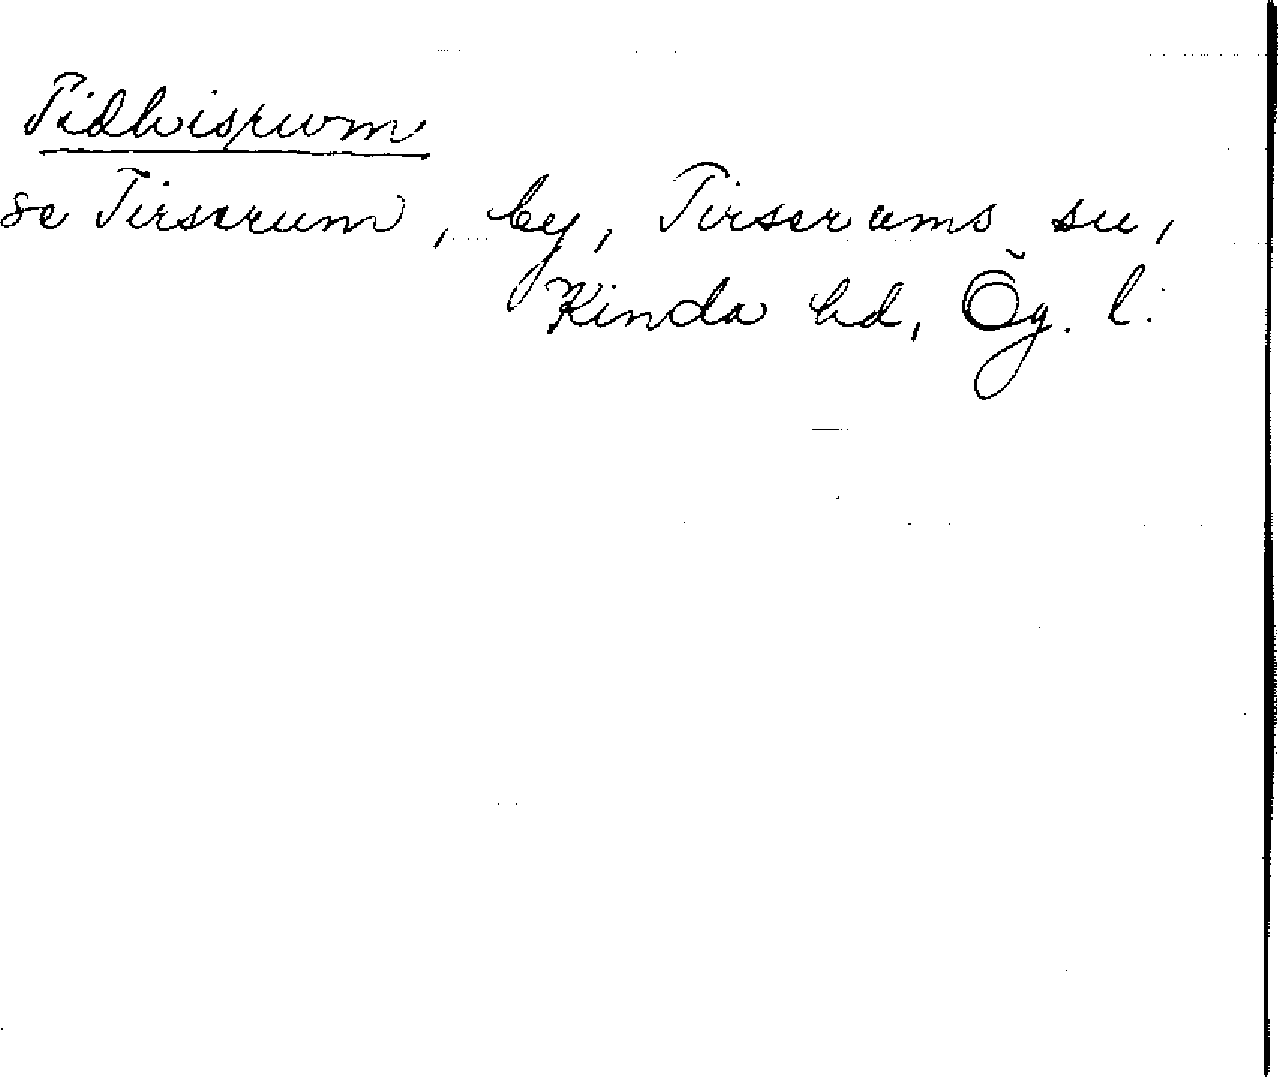 Tidhvisrwm
se Tirserum, by, Tirserums sn,
Kinda hd, Ög. l.